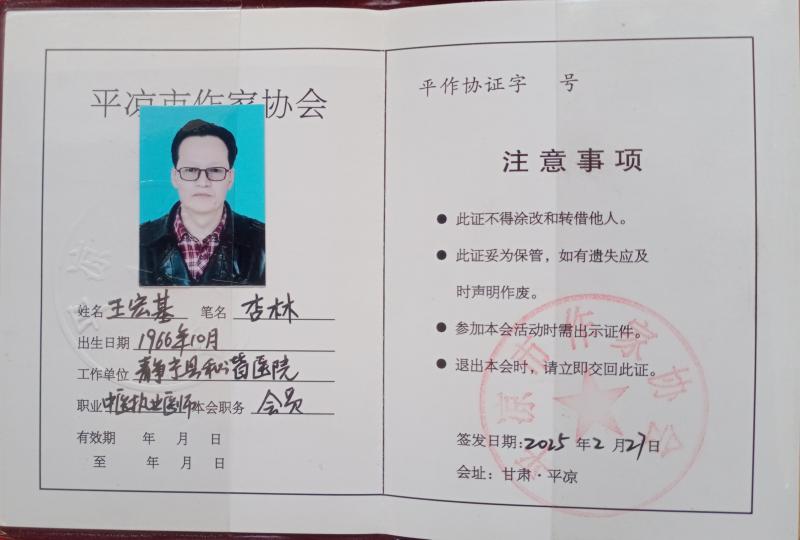 平凉市作家协会
姓名 王宏基 笔名 杏林
出生日期 1966年10月
工作单位 静宁县和谐医院
职业 中医执业医师 本会职务 会员
有效期 年 月 日
至 年 月 日
平作协证字 号
注意事项
● 此证不得涂改和转借他人。
● 此证妥为保管，如有遗失应及
时声明作废。
● 参加本会活动时需出示证件。
● 退出本会时，请立即交回此证。
签发日期：2025年2月27日
会址：甘肃·平凉
凉市作家协会